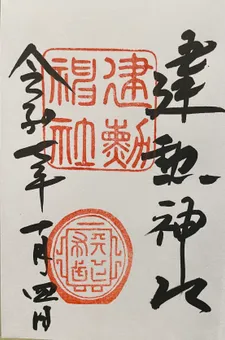 建勲神社
建勳
神社
令和七年十月四日